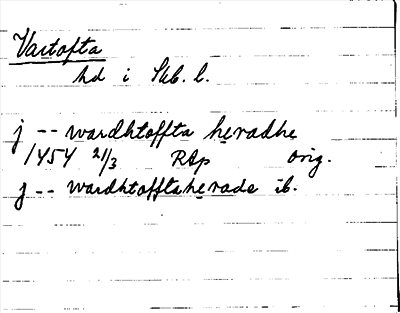 Vartofta
hd i Skb. l.
j -- wardhtoffta heradhe
1454 21/3 RAp orig.
j -- wardhtofftaherade ib.